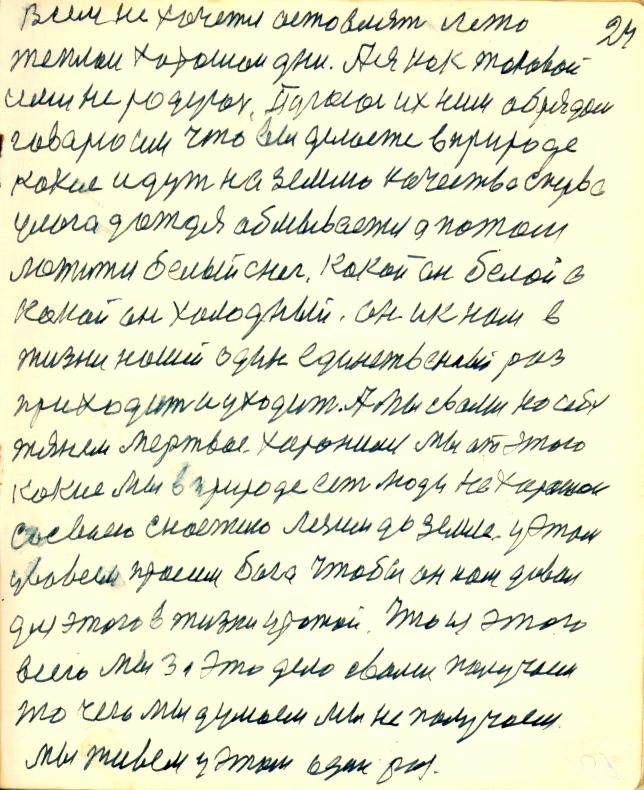 24
Всем не хочется оставлят лето
теплои хорошои дни. А я как таковой
ими не родуюсь. Подхожу их ним
говарю им что вы делаете в природе
какие идут на землю качества сперва
дождя обмывает а потом
лотит белый снег. Какой он белой а
какой он холодный. он и к нам в
жизни нашей один единственый раз
приходит и уходит. А мы свами на себе
тянем мертвое. хароним мы от этого
какие мы в природе ест люди на хорошои
со своею до земле. у этом
просим бога чтобы он нам давал
для этого в жизни урожай. Что из этого
всего мы за это дело свами получаем
то чего мы думаем мы не получаем.
мы живем у этом один раз.